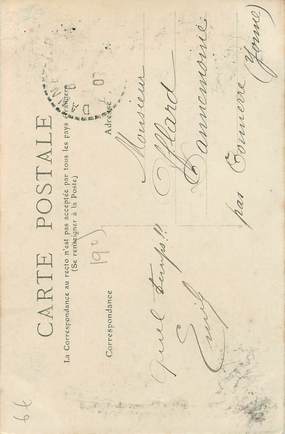 CARTE POSTALE
La Correspondance au recto n'est pas acceptée par tous les pays étrangers
(Se renseigner à la Poste)
Correspondance
Adresse
190
Quel temps!!
Emile
Monsieur
Allard
Tannemoine
par Tonnerre (Yonne)
6€